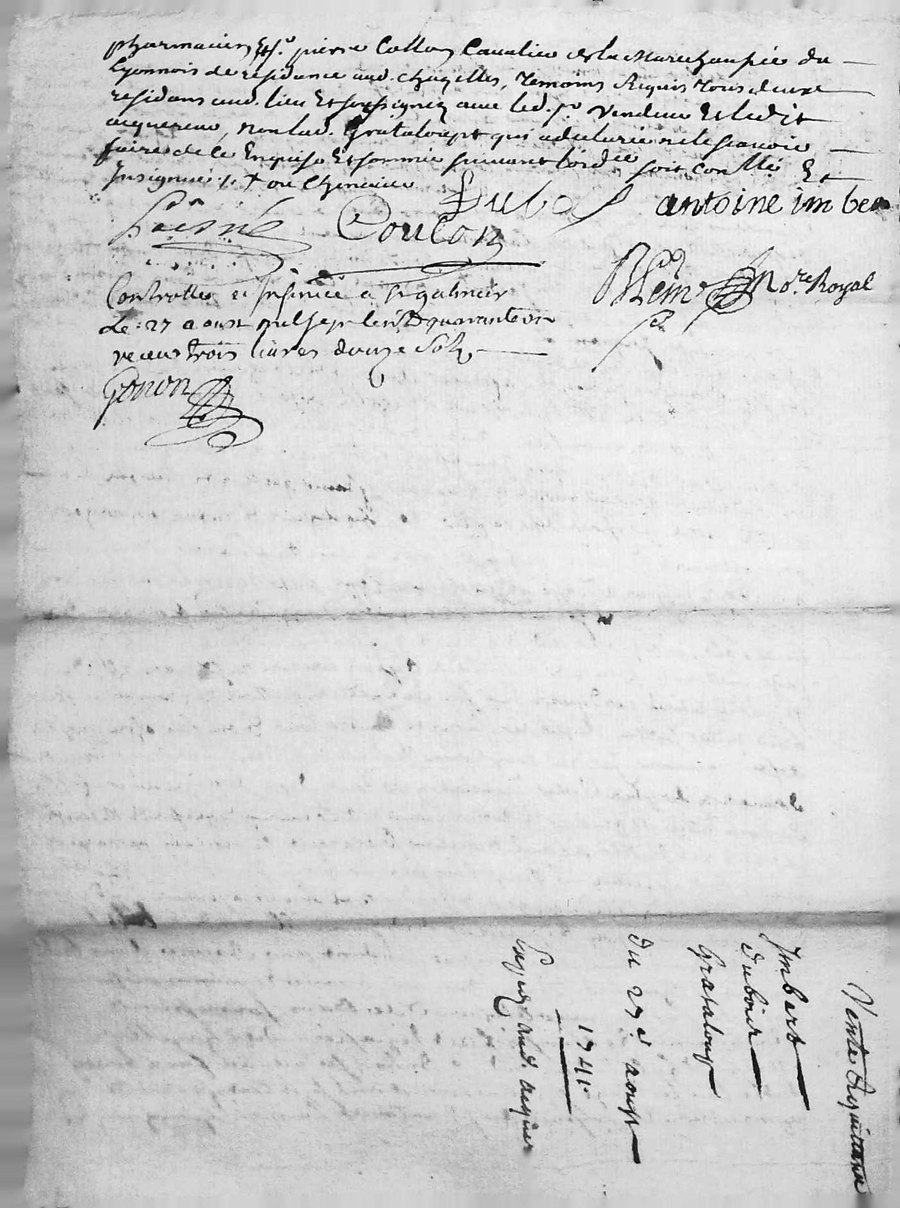 pharmacien Et Sr. pierre Collon Cavalier de la Marechaussée du
Lyonnois de residance aud. chazelles, Temoins Requis Tous deux
residans aud. lieu Et soussignez avec led. Sr. Vendeur Et ledit
acquereur, non lad. Grataloup qui a declaré ne le scavoir
faire de ce Enquise Et sommée suivant lordce soit Conllé Et
Insignué
Coulon Dubois antoine imber
nore. Royal
Controllé et Insinué a St galmier
Le 27 aoust mil sept cent quarante un
receu trois livres douze sols
Gonon
Vente Aquittance
Imbert
Dubois
Grataloup
du 27e aoust
1741.
aud. acquer